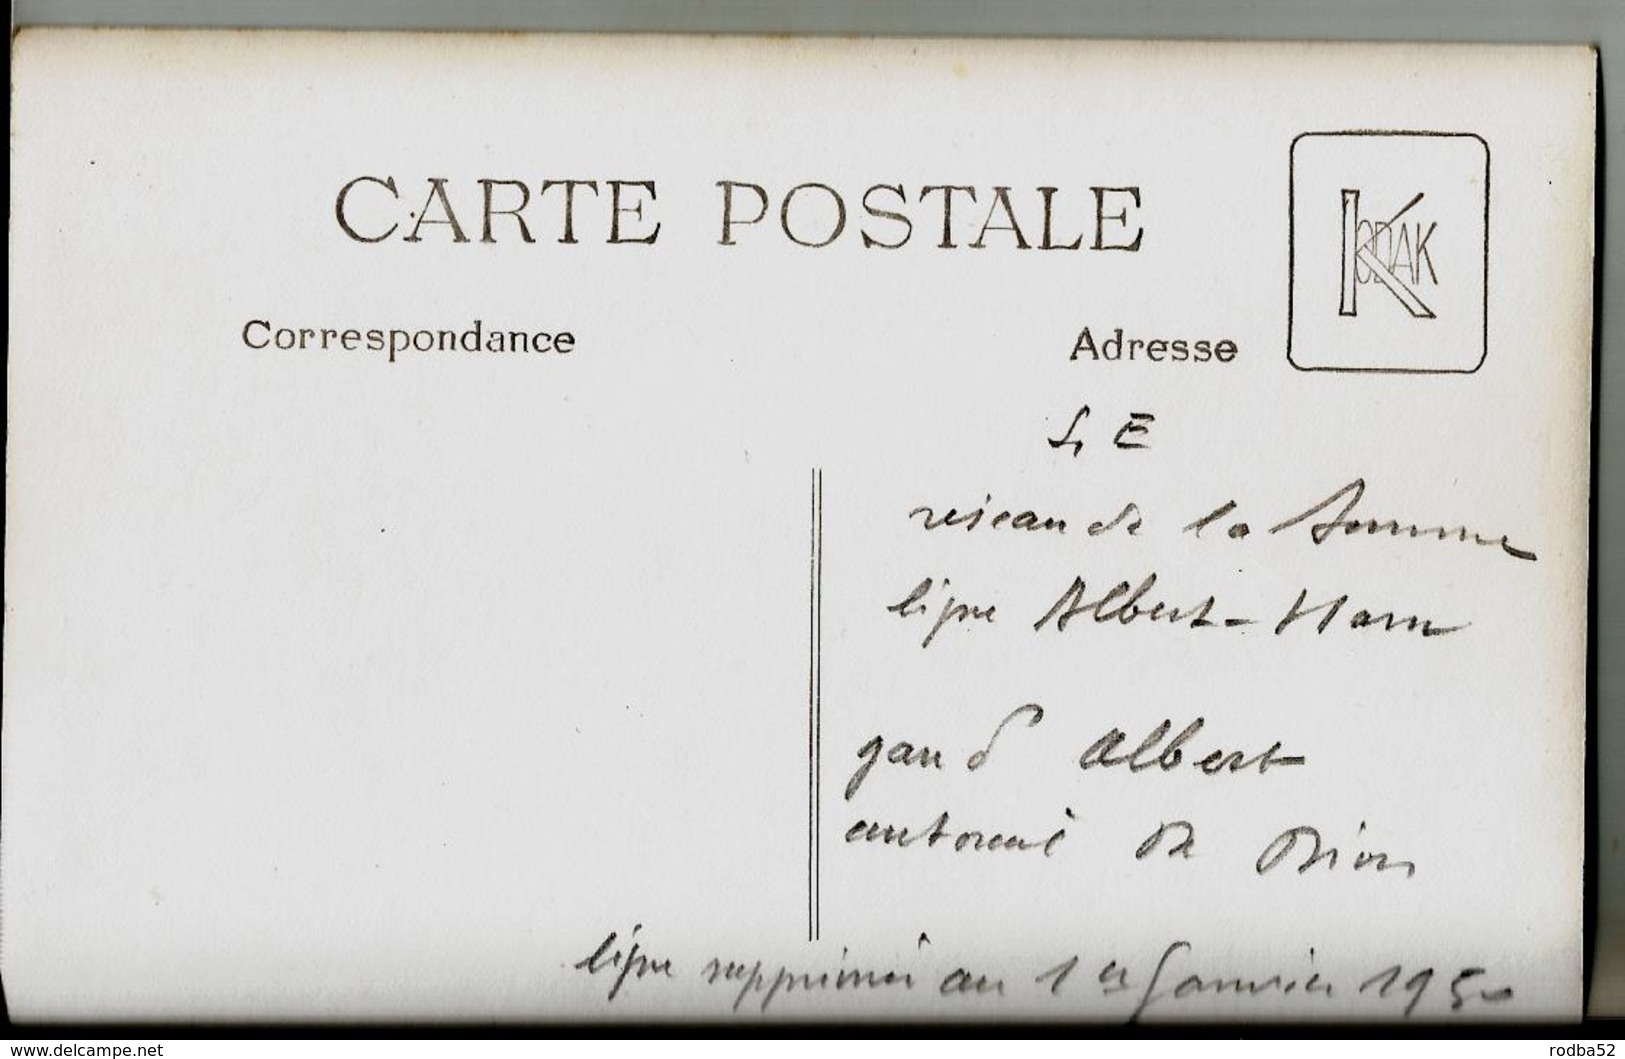 CARTE POSTALE
KODAK
Correspondance
Adresse
S, E
réseau de la Somme
ligne Albert-Ham
gare d'Albert
automé De Dion
ligne supprimée au 1er Janvier 1950
www.delcampe.net
rodba52